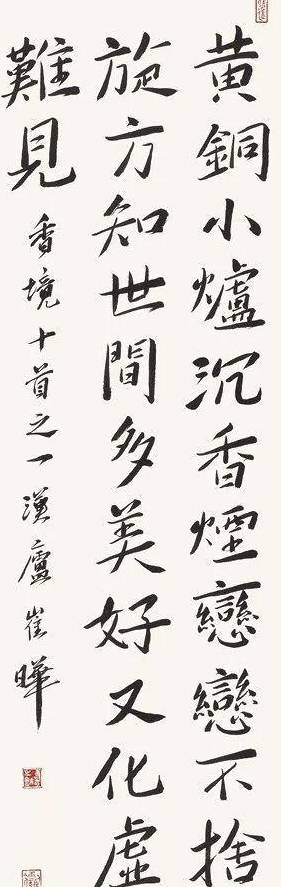 黄銅小爐沉香煙戀戀不捨
施方知世間多美好又化虛
難見
香境十首之一漢廬崔曄